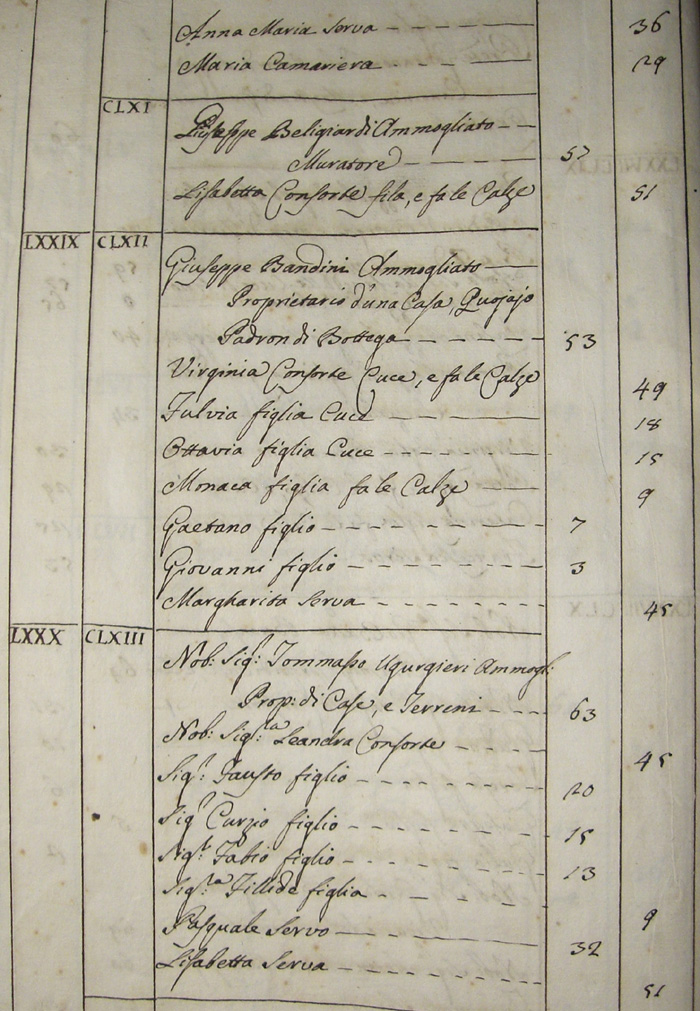 Anna Maria Serva 36
Maria Camariera 29
CLXI Giuseppe Beligiardi Ammogliato
Muratore 57
Lisabetta Consorte fila, e fa le Calze 51
LXXIX CLXII Giuseppe Bandini Ammogliato
Proprietario d'una Casa, Quojajo
Padron di Bottega 53
Virginia Consorte Cuce, e fa le Calze 49
Fulvia figlia Cuce 18
Ottavia figlia Cuce 15
Monaca figlia fa le Calze 9
Gaetano figlio 7
Giovanni figlio 3
Margharita Serva 45
LXXX CLXIII Nob: Sigr: Tommaso Ugurgieri Ammogl:
Prop: di Case, e Terreni 63
Nob: Sig:ra Leandra Consorte 45
Sigr: Fausto figlio 20
Sigr Curzio figlio 15
Sigr: Fabio figlio 13
Sig:ra Fillide figlia 9
Pasquale Servo 32
Lisabetta Serva 51